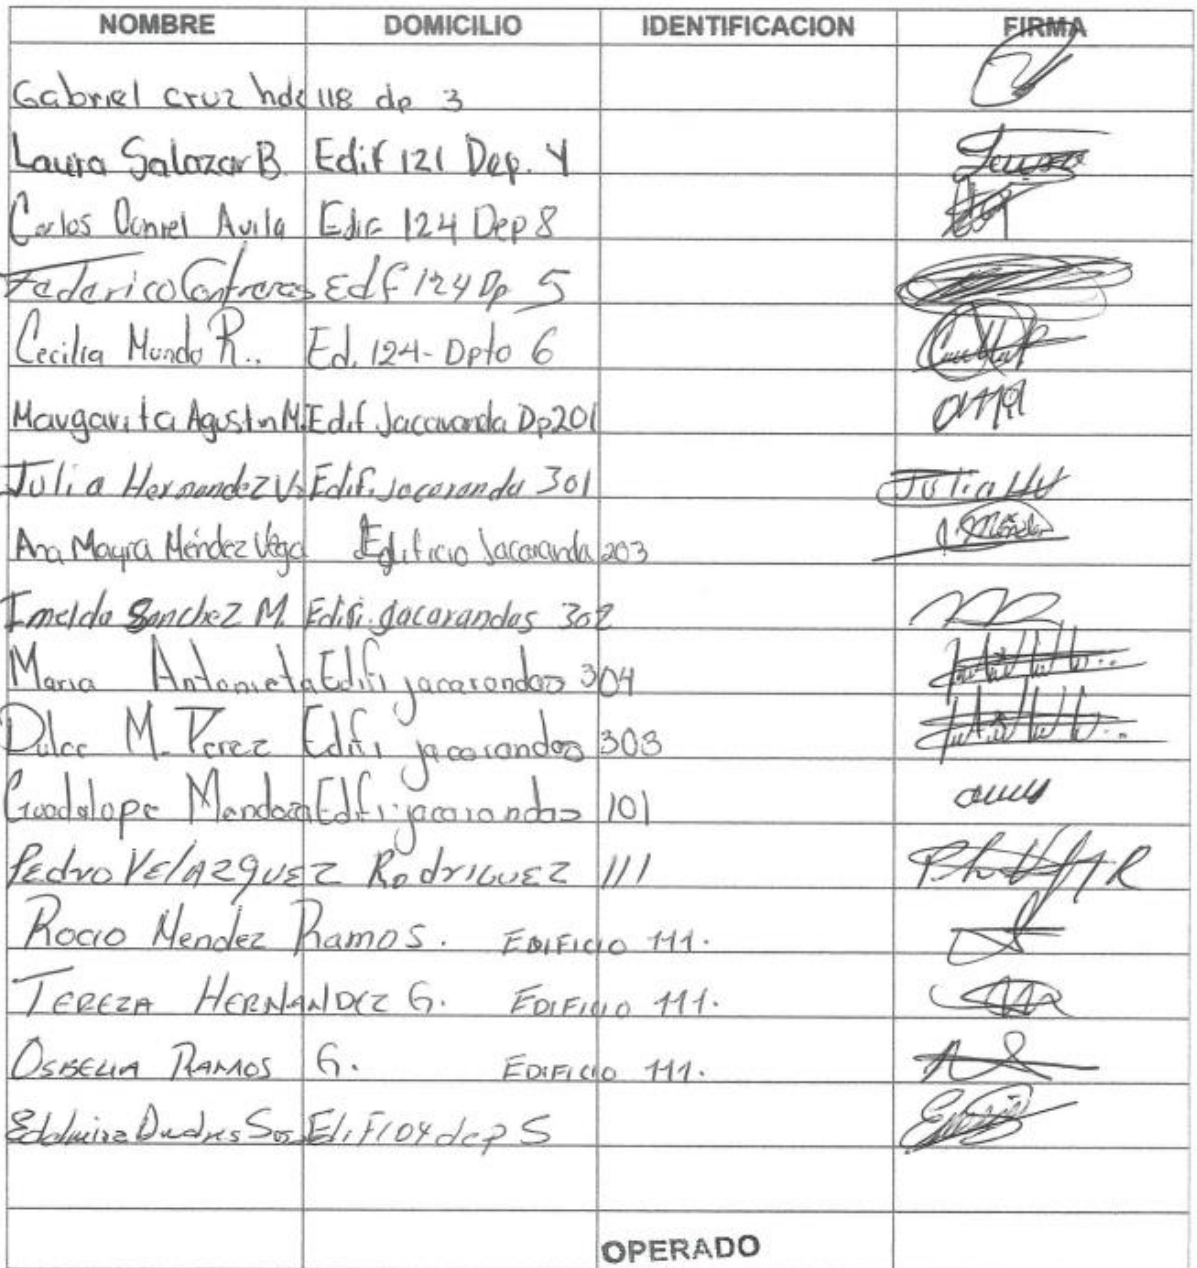 NOMBRE DOMICILIO IDENTIFICACION FIRMA
Gabriel cruz hdz 118 dp 3
Laura Salazar B. Edif 121 Dep. 4
Carlos Daniel Avila Edif 124 Dep 8
Federico Contreras Edf 124 Dp 5
Cecilia Mundo R.. Ed. 124- Dpto 6
Margarita Agustin M. Edif Jacaranda Dp201
Julia Hernandez V. Edifi. jacaranda 301 Julia
Ana Mayra Méndez Vega Edificio Jacaranda 203 Méndez
Imelda Sanchez M. Edifi. jacarandas 302
Maria Antonieta Edifi jacarandas 304
Dulce M. Perez Edifi jacarandas 303
Guadalope Mendoza Edifi jacarandas 101
Pedro VElAzquEz RodriguEz 111
Rocio Mendez Ramos. EDIFICIO 111.
TEREZA HERNANDEZ G. EDIFICIO 111.
OSBELIA RAMOS G. EDIFICIO 111.
Edif 104 dep 5
OPERADO